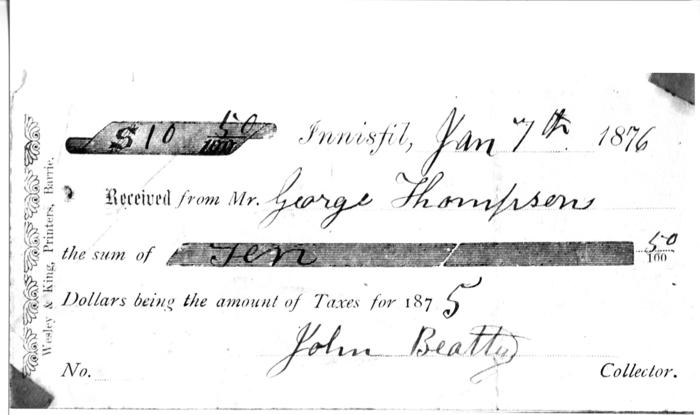 $10 50/100 Innisfil, Jan 7th 1876
Received from Mr. George Thompson
the sum of Ten 50/100
Dollars being the amount of Taxes for 1875
John Beatty
No. Collector.
Wesley & King, Printers, Barrie.